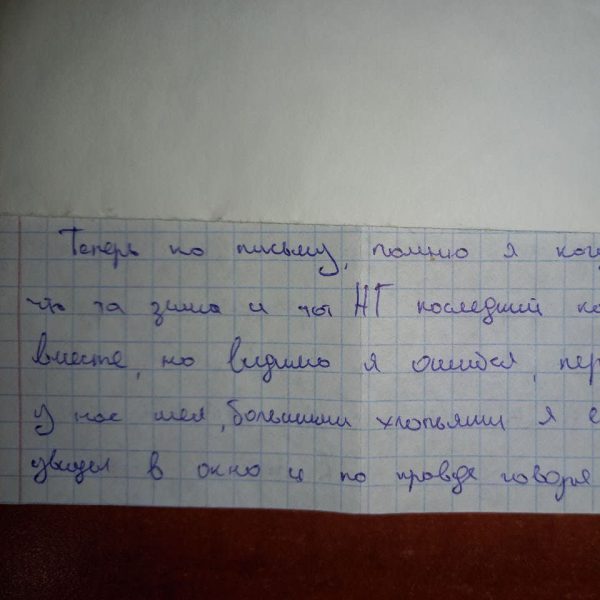 Теперь по письму, помню я
что та зима и тот НГ последний
вместе, но видимо я ошибся,
у нас шел, большими хлопьями я
увидел в окно и по правде говоря